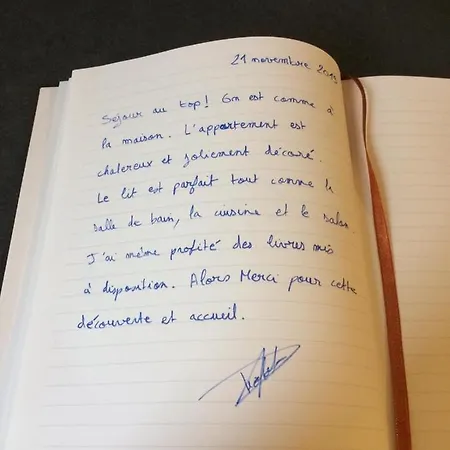 21 novembre
Sejour au top! On est comme à
la maison. L'appartement est
chalereux et joliement décoré.
Le lit est parfait tout comme la
salle de bain, la cuisine et le salon.
J'ai même profité des livres mis
à disposition. Alors Merci pour cette
découverte et accueil.